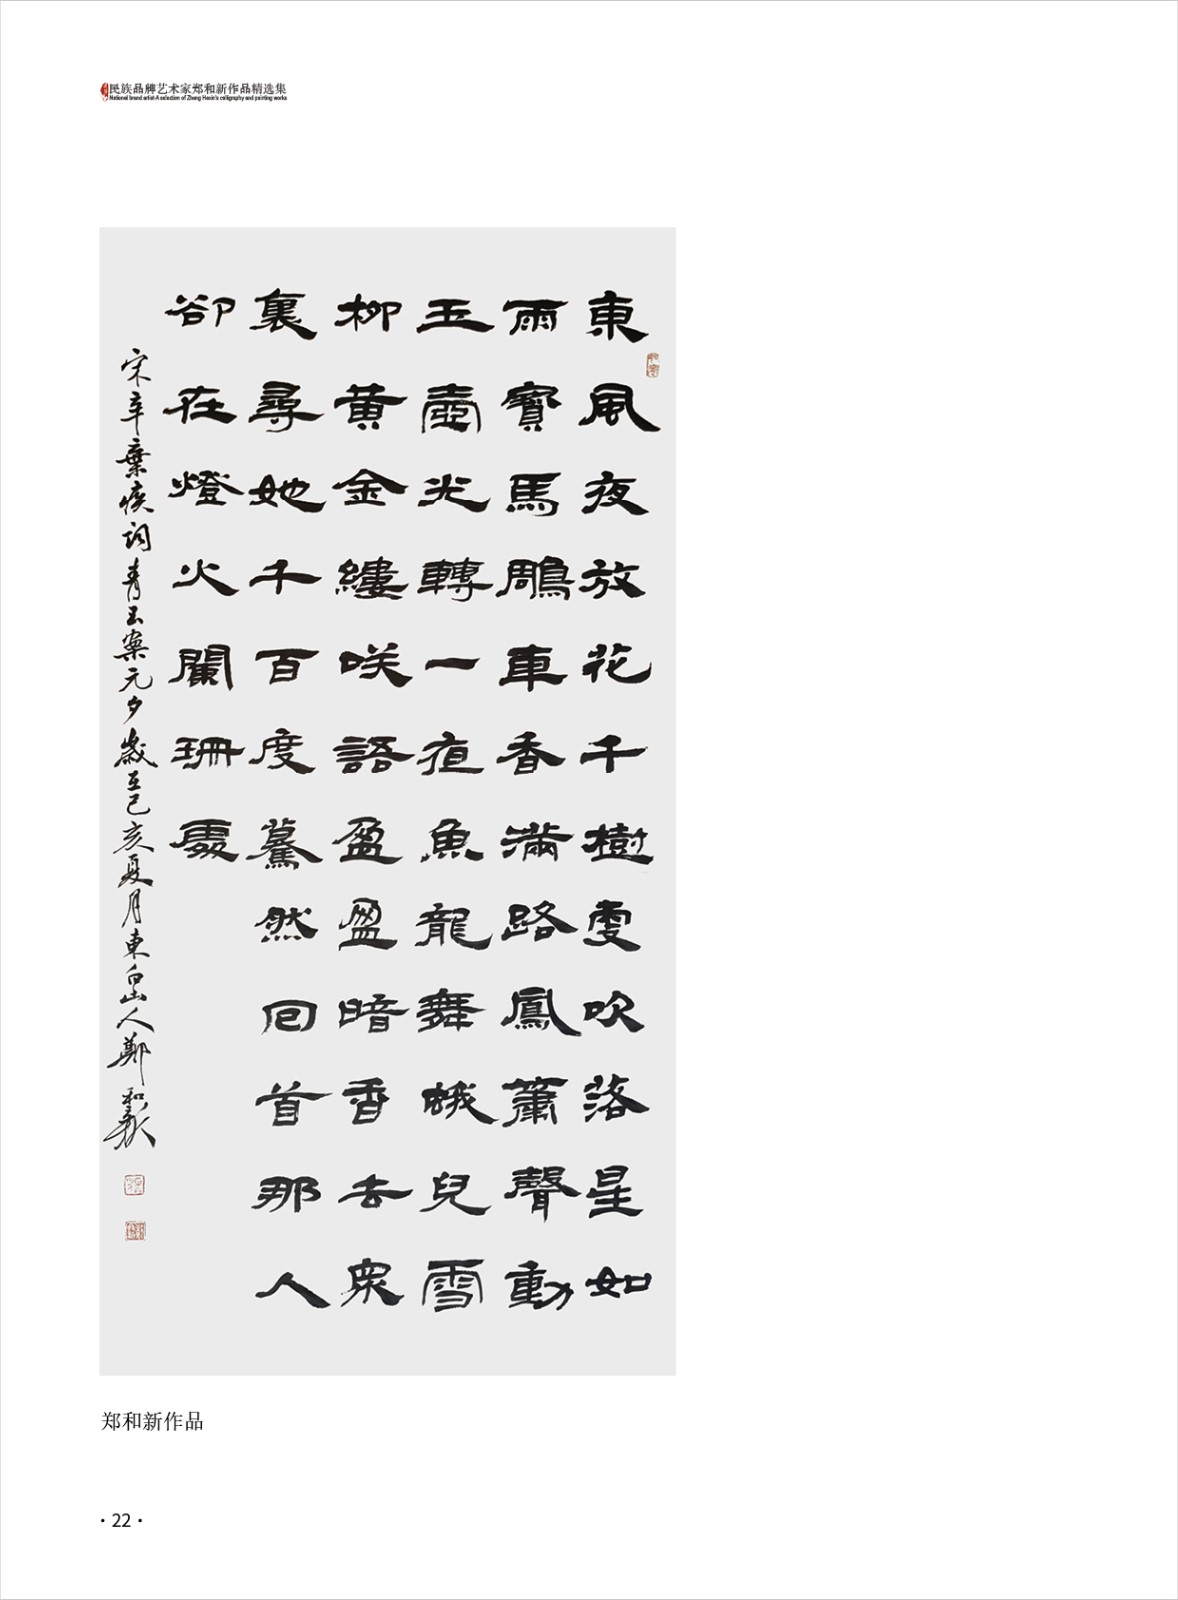 民族品牌艺术家郑和新作品精选集
National brand artist-A selection of Zheng Hexin's calligraphy and painting works
東風夜放花千樹更吹落星如
雨寶馬雕車香滿路鳳簫聲動
玉壺光轉一夜魚龍舞蛾兒雪
柳黃金縷咲語盈盈暗香去眾
裏尋她千百度驀然回首那人
卻在燈火闌珊處
宋辛棄疾詞青玉案元夕歲在己亥夏月東白山人鄭和新
郑和新作品
·22·